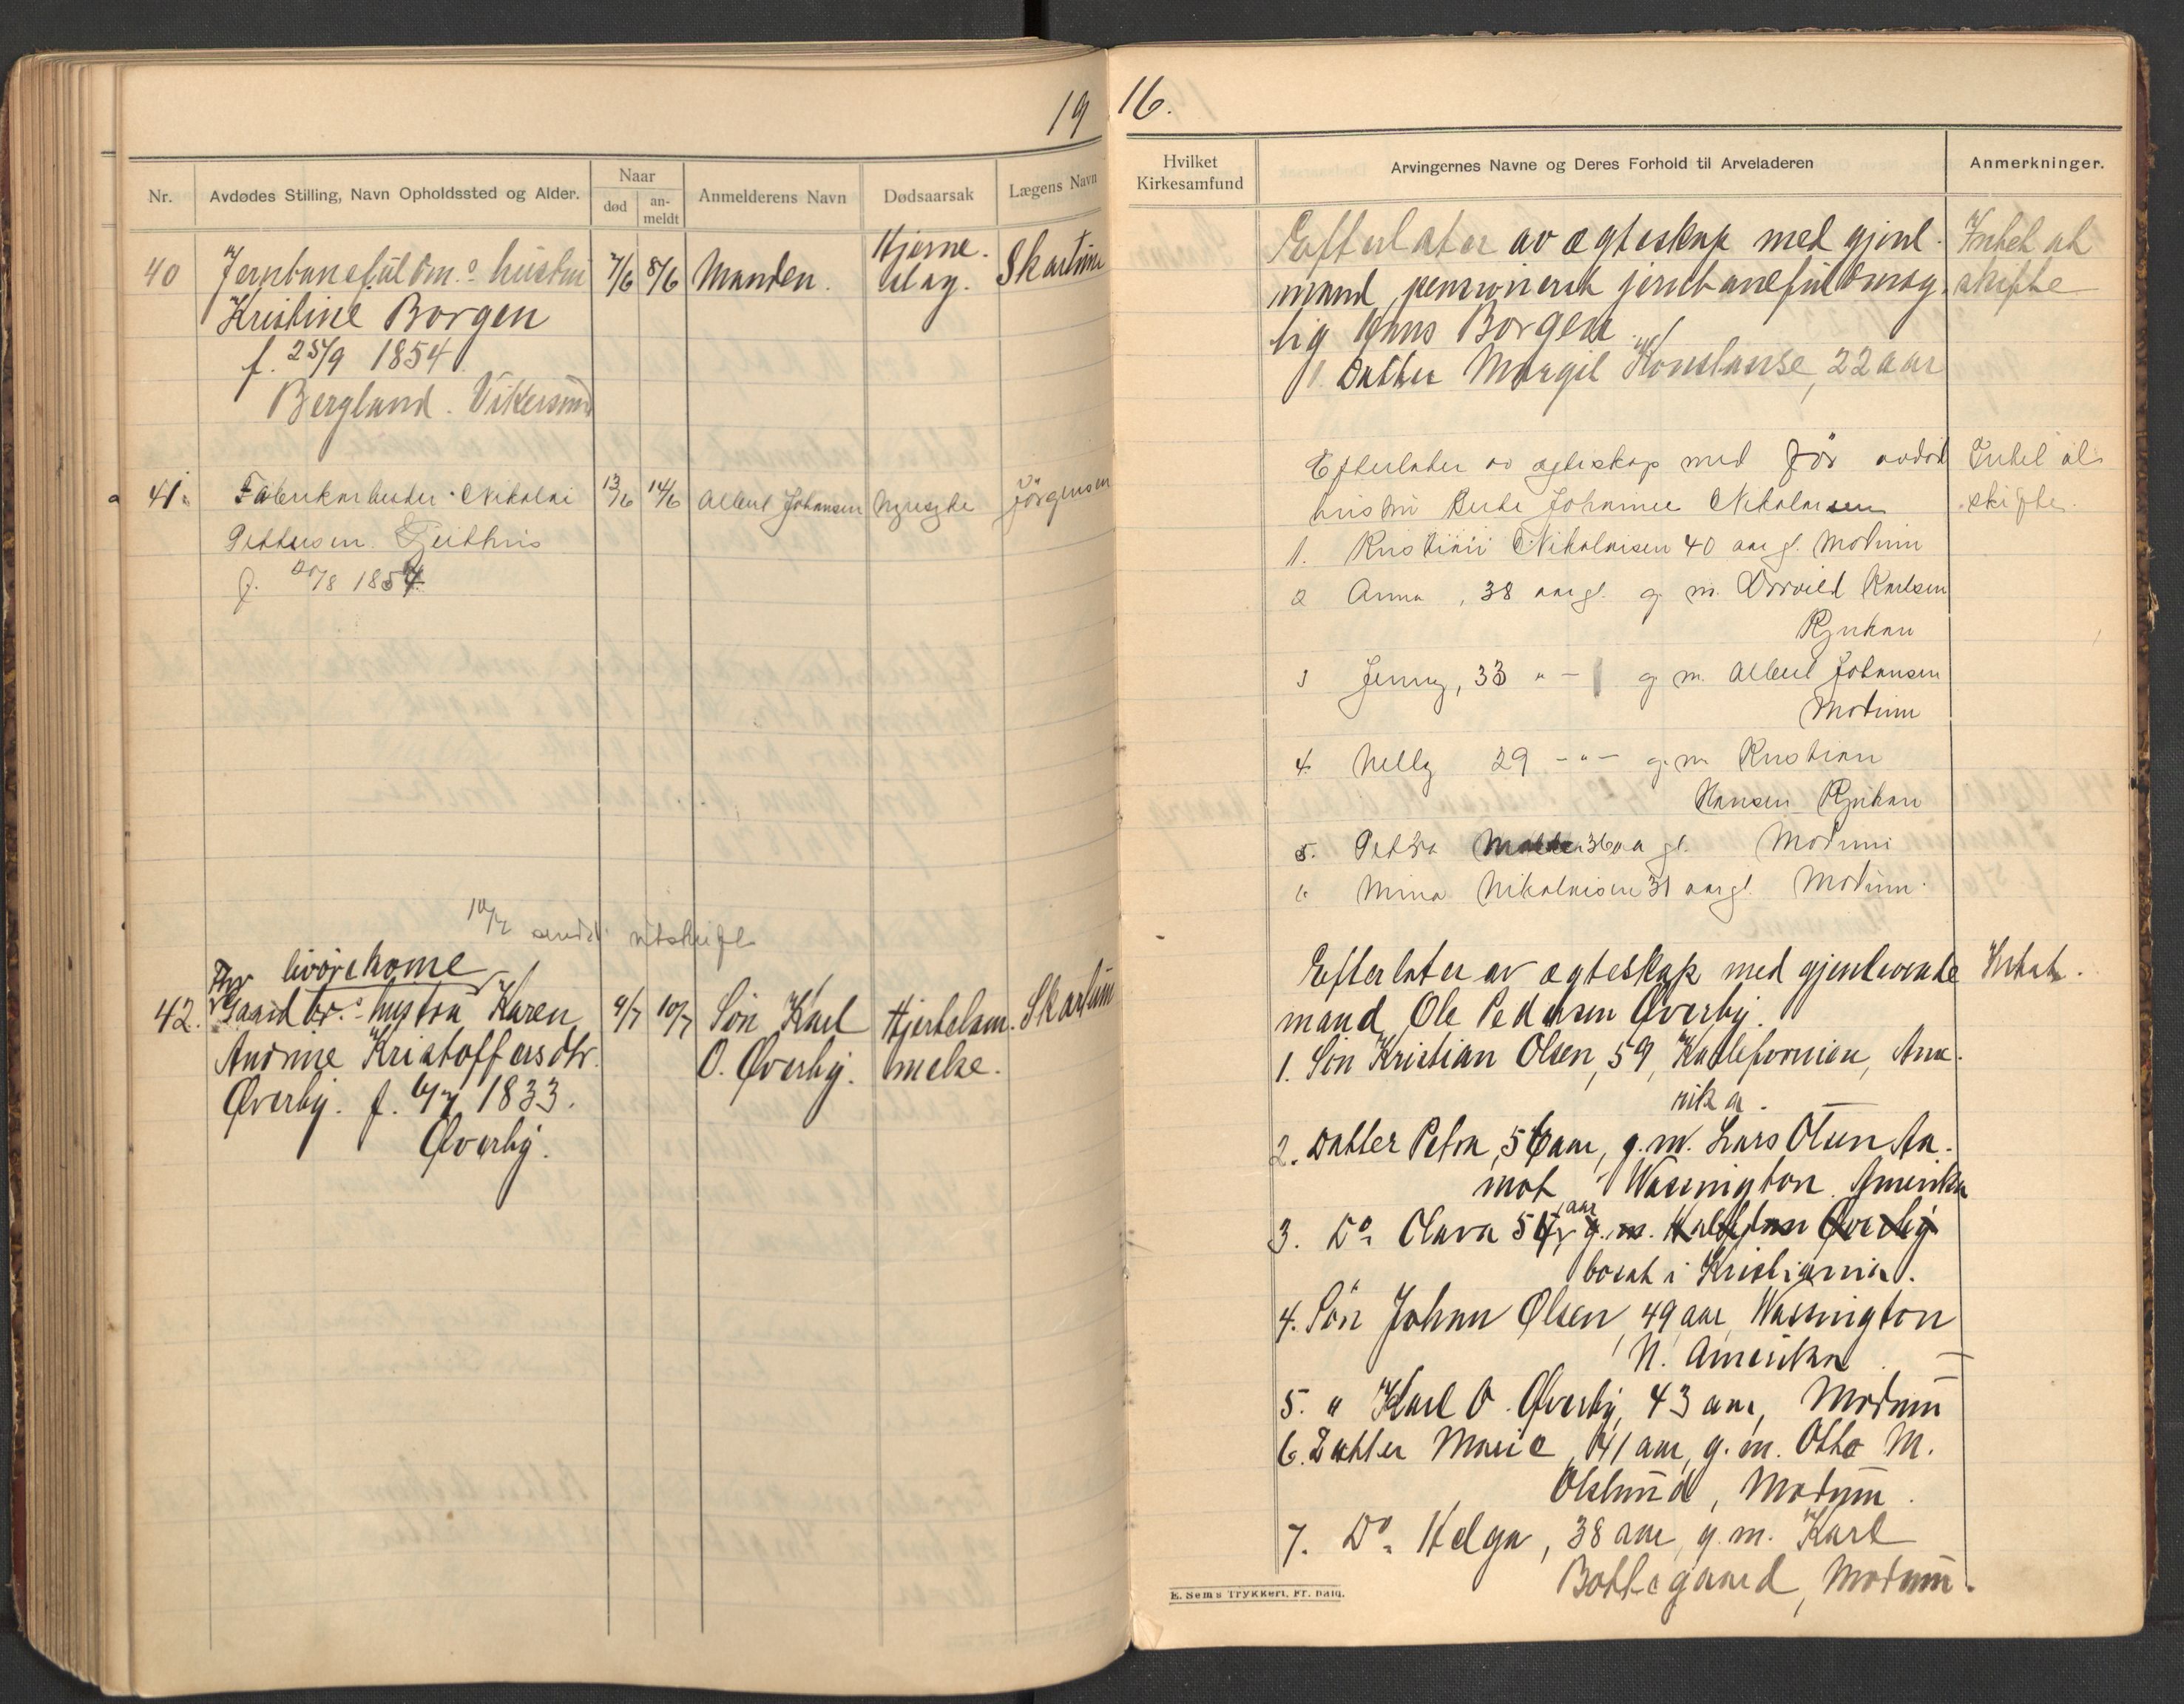 19
Nr.
Avdødes Stilling, Navn Opholdssted og Alder.
Naar
død
an-
meldt
Anmelderens Navn
Dødsaarsak
Lægens Navn
40
Jernbanefuldm.s hustru
Kristine Borgen
f. 25/9 1854
Bergland. Vikersund
7/6
8/6
Manden.
Hjerne-
slag.
Skartum
41.
Fabrikarbeider Nikolai
Pettersen Geithus
f. 20/8 1854
13/6
14/6
Albert Johansen
Nyresyke
Jörgensen
10/7 sendt utskrift
livörekone
42.
Gaardbr.s hustru Karen
Andrine Kristoffersdtr.
Øverby. f. 6/7 1833.
Øverby.
9/7
10/7
Sön Karl
O. Øverby.
Hjertelam-
melse.
Skartum
16.
Hvilket
Kirkesamfund
Arvingernes Navne og Deres Forhold til Arveladeren
Anmerkninger.
Efterlater av egteskap med gjenl.
mand, pensioneret jernbanefuldmæg-
tig Hans Borgen.
1. Datter Margit Konstanse, 22 aar
Intet at
skifte
Efterlater av egteskap med för avdöd
hustru Johanne Nikolaisen
1. Kristian Nikolaisen 40 aar gl. Modum
2 Anna, 38 aar gl. g. m. Karlsen
Rjukan
3 Jenny, 33 " - g. m. Albert Johansen
Modum
4 Nelly 29 - " - g. m. Kristian
Hansen Rjukan
5. Petra 36 aar gl. Modum
6 Mina Nikolaisen 31 aar gl. Modum.
Intet at
skifte.
Efterlater av egteskap med gjenlevende
mand Ole Pedersen Øverby.
1. Sön Kristian Olsen, 59, Kalefornien, Ame-
rika.
2. Datter Petra, 56 aar, g. m. Lars Olsen Aa-
mot Wassington Amerika
3. Do. Olava 54 aar g. m. Halfdan Øverby
bosat i Kristiania.
4. Sön Johan Olsen, 49 aar, Wassington
N. Amerika
5. " Karl O. Øverby, 43 aar, Modum
6. Datter Marie, 41 aar, g. m. Otto M.
Oklund, Modum.
7. Do. Helga, 38 aar, g. m. Karl
Bottegaard, Modum.
E. Sem's Trykkeri, Fr. hald.